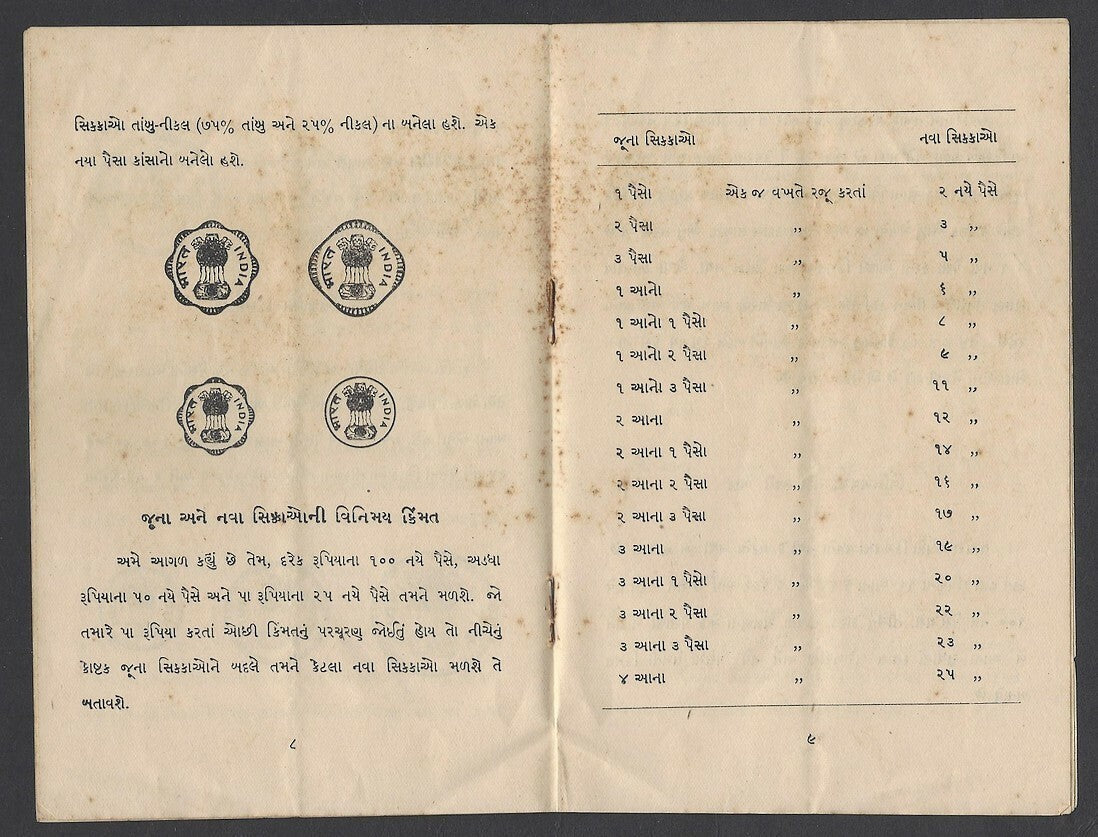 સિક્કાઓ તાંબુ-નીકલ (૭૫% તાંબુ અને ૨૫% નીકલ) ના બનેલા હશે. એક
નયા પૈસા કાંસાનો બનેલો હશે.
भारत INDIA
भारत INDIA
भारत INDIA
भारत INDIA
જૂના અને નવા સિક્કાઓની વિનિમય કિંમત
અમે આગળ કહ્યું છે તેમ, દરેક રૂપિયાના ૧૦૦ નયે પૈસે, અડધા
રૂપિયાના ૫૦ નયે પૈસે અને પા રૂપિયાના ૨૫ નયે પૈસે તમને મળશે. જો
તમારે પા રૂપિયા કરતાં ઓછી કિંમતનું પરચૂરણ જોઈતું હોય તો નીચેનું
કોષ્ટક જૂના સિક્કાઓને બદલે તમને કેટલા નવા સિક્કાઓ મળશે તે
બતાવશે.
૮
જૂના સિક્કાઓ નવા સિક્કાઓ
૧ પૈસો એક જ વખતે રજૂ કરતાં ૨ નયે પૈસે
૨ પૈસા ,, ૩ ,,
૩ પૈસા ,, ૫ ,,
૧ આનો ,, ૬ ,,
૧ આનો ૧ પૈસો ,, ૮ ,,
૧ આનો ૨ પૈસા ,, ૯ ,,
૧ આનો ૩ પૈસા ,, ૧૧ ,,
૨ આના ,, ૧૨ ,,
૨ આના ૧ પૈસો ,, ૧૪ ,,
૨ આના ૨ પૈસા ,, ૧૬ ,,
૨ આના ૩ પૈસા ,, ૧૭ ,,
૩ આના ,, ૧૯ ,,
૩ આના ૧ પૈસો ,, ૨૦ ,,
૩ આના ૨ પૈસા ,, ૨૨ ,,
૩ આના ૩ પૈસા ,, ૨૩ ,,
૪ આના ,, ૨૫ ,,
૯